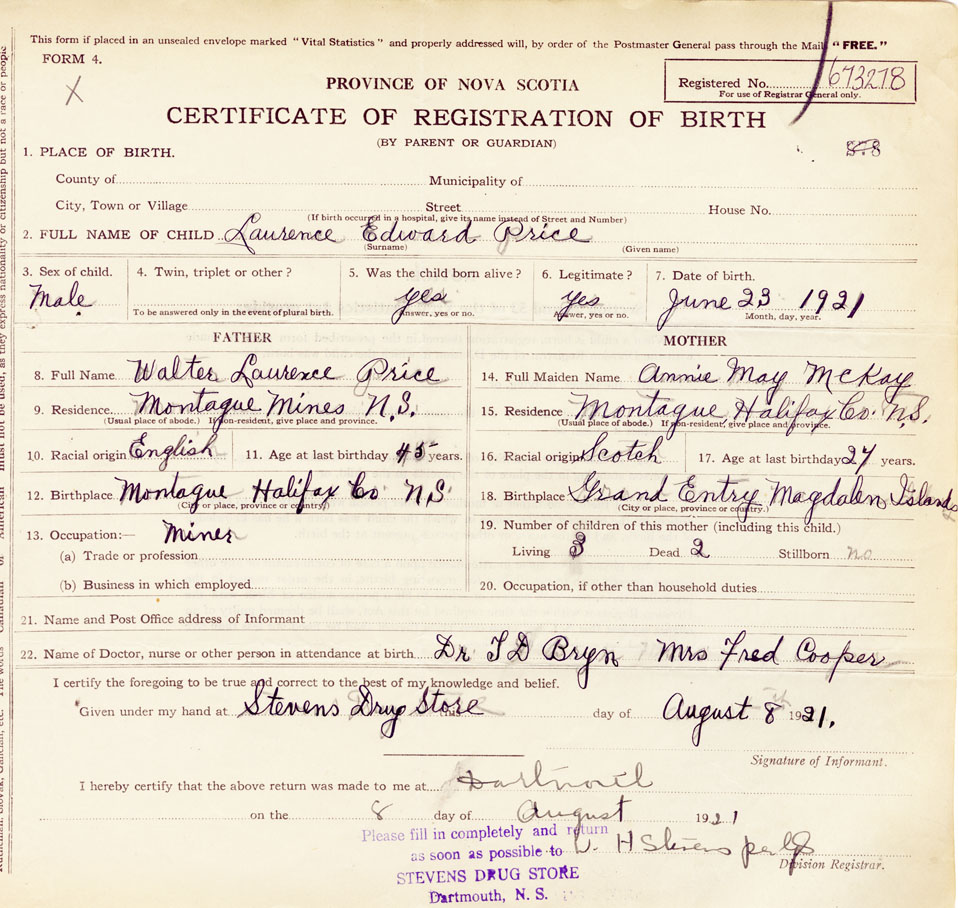 This form if placed in an unsealed envelope marked "Vital Statistics" and properly addressed will, by order of the Postmaster General pass through the Mail "FREE."
FORM 4.
X
PROVINCE OF NOVA SCOTIA
Registered No. 673278
For use of Registrar General only.
CERTIFICATE OF REGISTRATION OF BIRTH
(BY PARENT OR GUARDIAN)
1. PLACE OF BIRTH.
County of Municipality of
City, Town or Village Street House No.
(If birth occurred in a hospital, give its name instead of Street and Number)
2. FULL NAME OF CHILD Laurence Edward Price
(Surname) (Given name)
3. Sex of child. 4. Twin, triplet or other? 5. Was the child born alive? 6. Legitimate? 7. Date of birth.
Male yes yes June 23 1921
To be answered only in the event of plural birth. Answer, yes or no. Answer, yes or no. Month, day, year.
FATHER
8. Full Name Walter Laurence Price
9. Residence. Montague Mines N.S.
(Usual place of abode.) If non-resident, give place and province.
10. Racial origin English 11. Age at last birthday 45 years.
12. Birthplace Montague Halifax Co N S
(City or place, province or country.)
13. Occupation:— Miner
(a) Trade or profession
(b) Business in which employed
MOTHER
14. Full Maiden Name Annie May McKay
15. Residence Montague Halifax Co. N.S.
(Usual place of abode.) If non-resident, give place and province.
16. Racial origin Scotch 17. Age at last birthday 27 years.
18. Birthplace Grand Entry Magdalen Islands
(City or place, province or country.)
19. Number of children of this mother (including this child.)
Living 3 Dead 2 Stillborn no
20. Occupation, if other than household duties
21. Name and Post Office address of Informant
22. Name of Doctor, nurse or other person in attendance at birth. Dr T D Bryn Mrs Fred Cooper
I certify the foregoing to be true and correct to the best of my knowledge and belief.
Given under my hand at Stevens Drug Store this day of August 8 1921.
Signature of Informant.
I hereby certify that the above return was made to me at
on the 8 day of August 1921
Please fill in completely and return
as soon as possible to
STEVENS DRUG STORE
Dartmouth, N. S.
H Stevens per
Division Registrar.